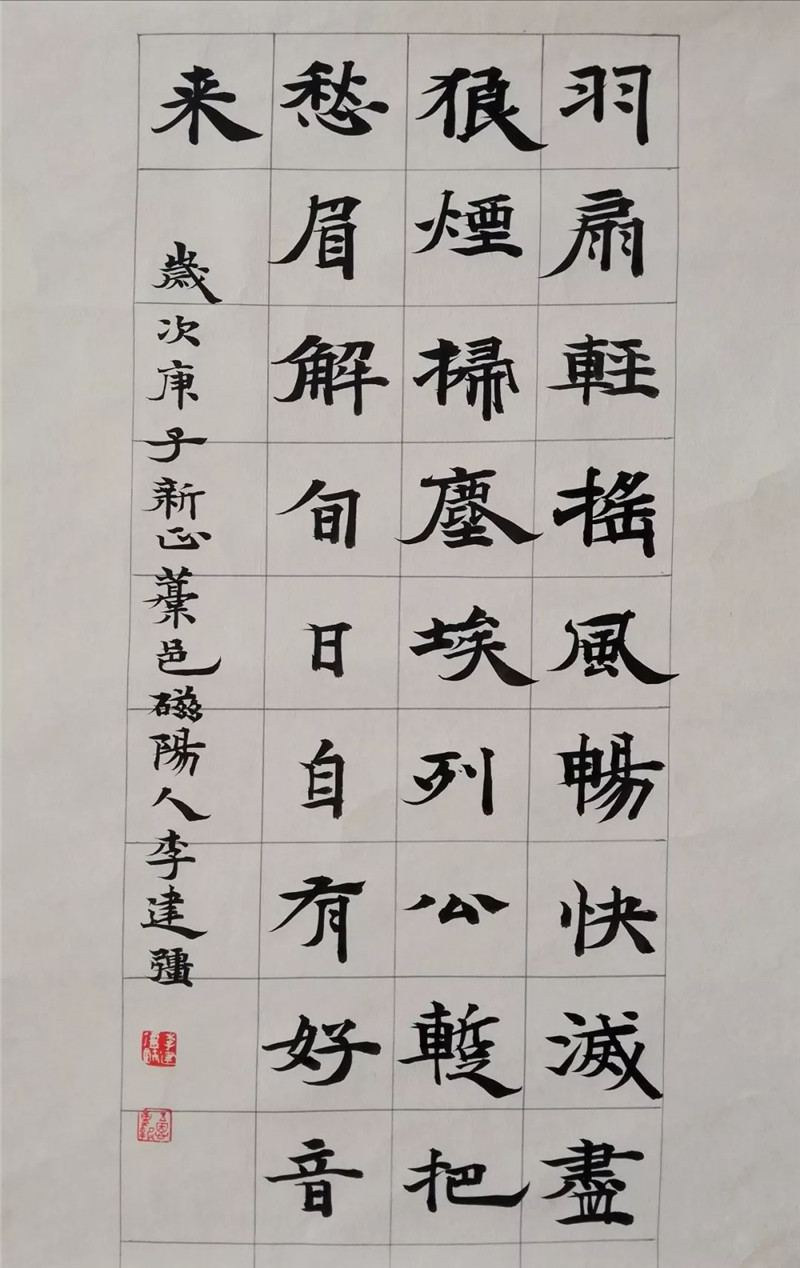 羽扇輕搖風暢快滅盡
狼煙掃塵埃列公暫把
愁眉解旬日自有好音
来
歲次庚子新正藁邑磁陽人李建彊